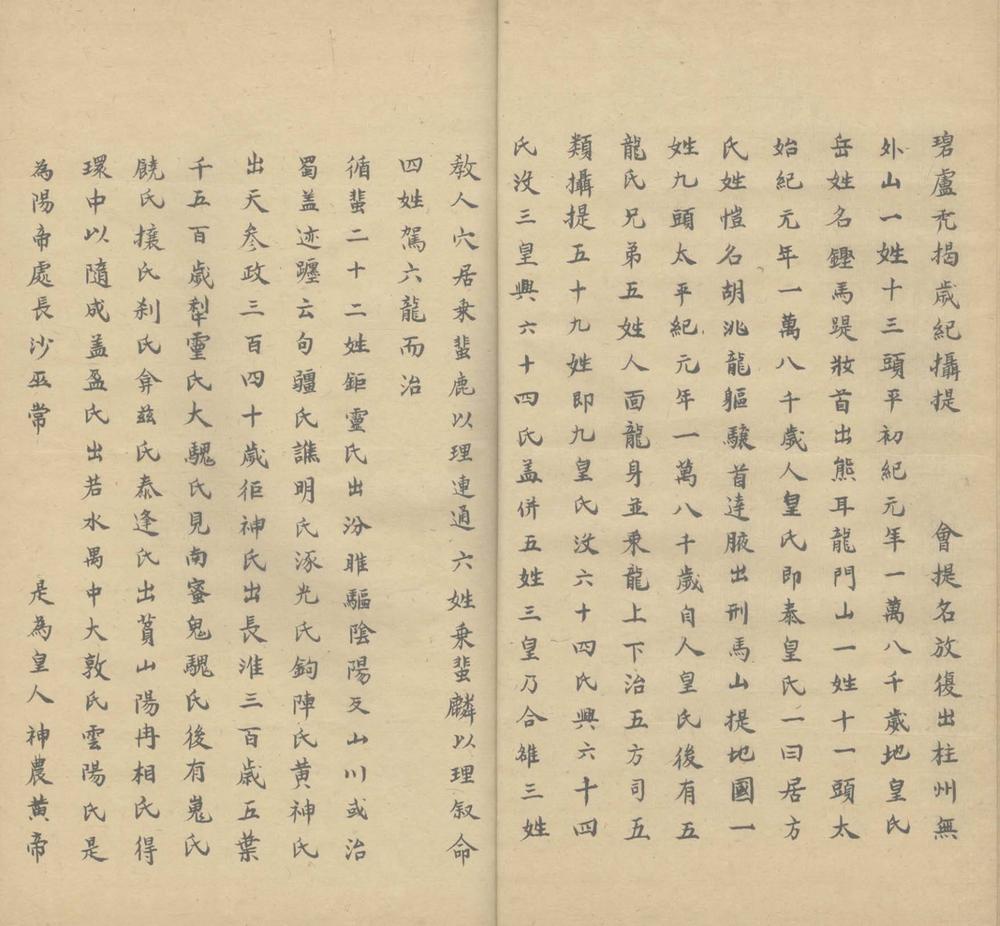 碧盧禿揭歲紀攝提　會提名放復出柱州無
外山一姓十三頭平初紀元年一萬八千歲地皇氏
岳姓名鏗馬踶妝首出熊耳龍門山一姓十一頭太
始紀元年一萬八千歲人皇氏即泰皇氏一曰居方
氏姓愷名胡洮龍軀驤首達腋出刑馬山提地國一
姓九頭太平紀元年一萬八千歲自人皇氏後有五
龍氏兄弟五姓人面龍身並乘龍上下治五方司五
類攝提五十九姓即九皇氏沒六十四氏興六十四
氏沒三皇興六十四氏蓋併五姓三皇乃合雒三姓
教人穴居乘蜚鹿以理連通六姓乘蜚麟以理叙命
四姓駕六龍而治
循蜚二十二姓鉅靈氏出汾脽驅陰陽反山川或治
蜀盖迹躔云句疆氏譙明氏涿光氏鉤陣氏黃神氏
出天參政三百四十歲𢓜神氏出長淮三百歲五葉
千五百歲犁靈氏大騩氏見南蜜鬼騩氏後有嵬氏
饒氏攘氏刹氏弇茲氏泰逢氏出萯山陽冉相氏得
環中以隨成盖盈氏出若水禺中大敦氏雲陽氏是
為陽帝處長沙巫常　是為皇人神農黃帝